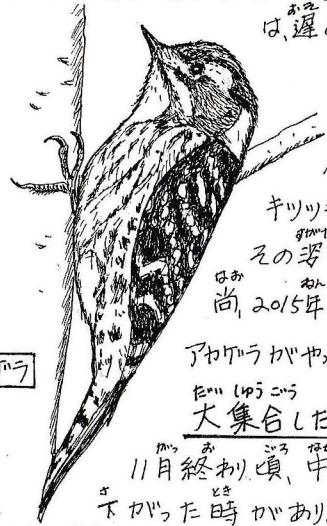 は、遅
キツツ
その姿
尚、2015年
アカゲラがや
ゲラ
大集合した
11月終わり頃、中
下がった時があり